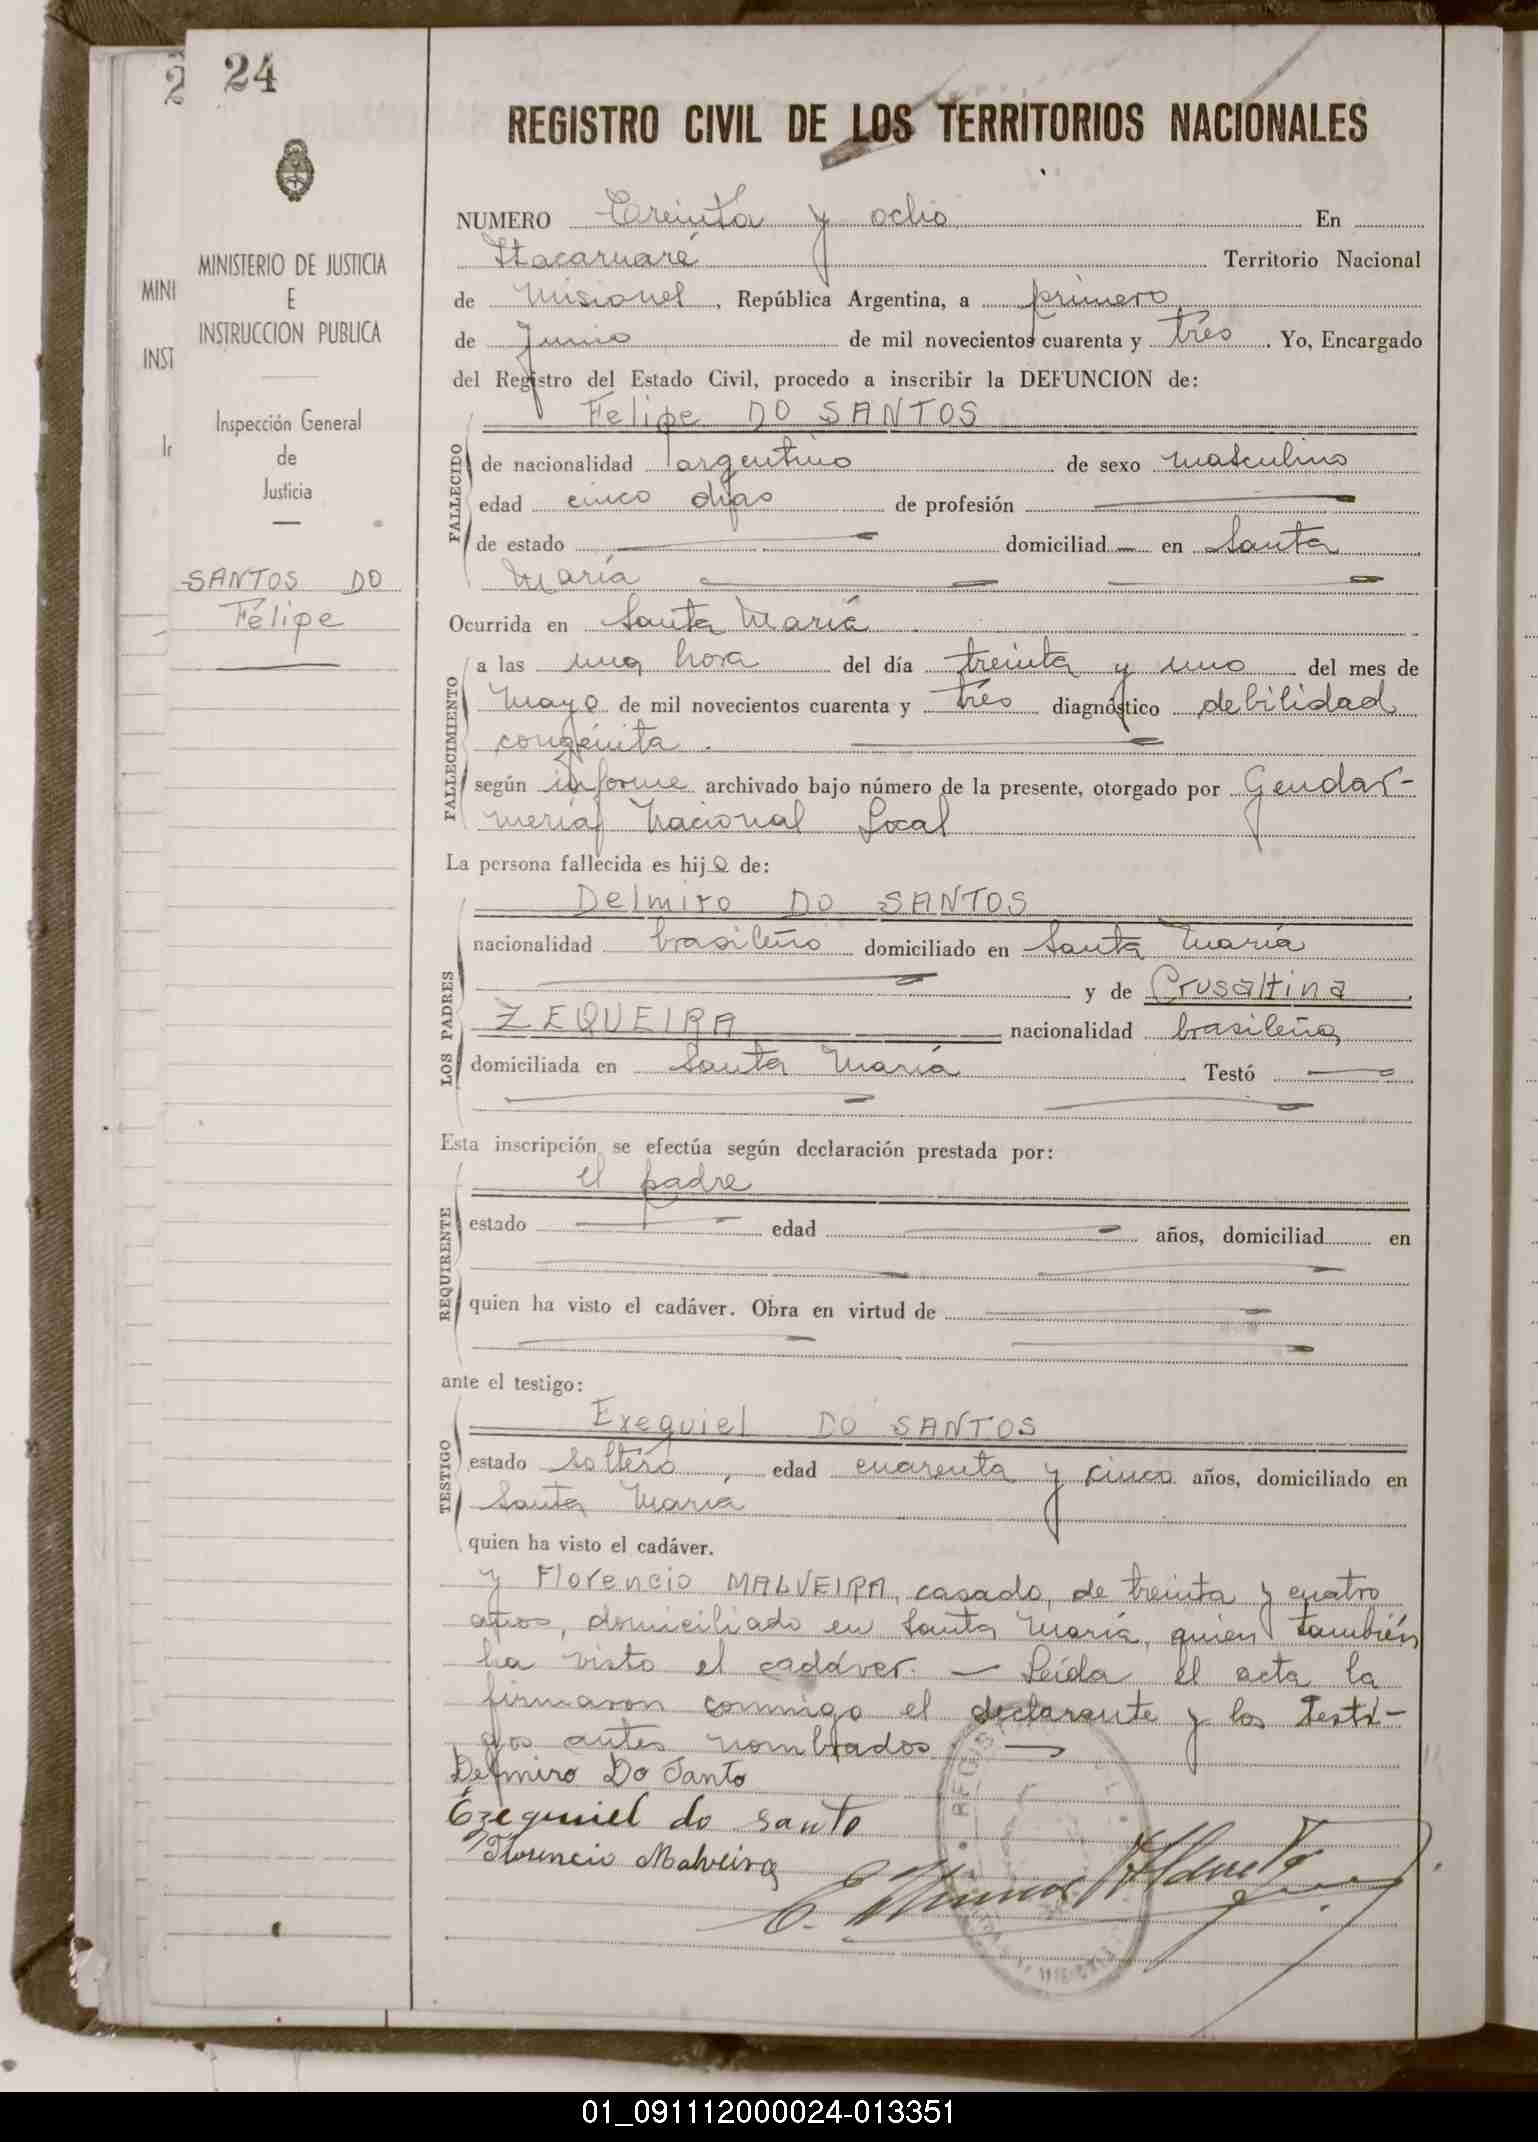 24
MINISTERIO DE JUSTICIA
E
INSTRUCCION PUBLICA
Inspección General
de
Justicia
SANTOS DO
Felipe
MINI
INST
REGISTRO CIVIL DE LOS TERRITORIOS NACIONALES
NUMERO Treinta y ocho En
Itacaruaré Territorio Nacional
de Misiones, República Argentina, a primero
de Junio de mil novecientos cuarenta y tres. Yo, Encargado
del Registro del Estado Civil, procedo a inscribir la DEFUNCION de:
Felipe DO SANTOS
FALLECIDO
de nacionalidad argentino de sexo masculino
edad cinco días de profesión
de estado domiciliad en Santa
María
Ocurrida en Santa María
FALLECIMIENTO
a las una hora del día treinta y uno del mes de
Mayo de mil novecientos cuarenta y tres diagnóstico debilidad
congénita.
según informe archivado bajo número de la presente, otorgado por Gendar-
mería Nacional Local
La persona fallecida es hijo de:
Delmiro DO SANTOS
LOS PADRES
nacionalidad brasileño domiciliado en Santa María
y de Crusaltina
ZEQUEIRA nacionalidad brasileña,
domiciliada en Santa María Testó
Esta inscripción se efectúa según declaración prestada por:
el padre
REQUIRENTE
estado edad años, domiciliad en
quien ha visto el cadáver. Obra en virtud de
ante el testigo:
Exequiel DO SANTOS
TESTIGO
estado soltero, edad cuarenta y cinco años, domiciliado en
Santa María
quien ha visto el cadáver.
y Florencio MALVEIRA, casado, de treinta y cuatro
años, domiciliado en Santa María, quien también
ha visto el cadáver. — Leída el acta la
firmaron conmigo el declarante y los testi-
gos antes nombrados. —
Delmiro Do Santo
Ezequiel do santo
Florencio Malveira
01_091112000024-013351